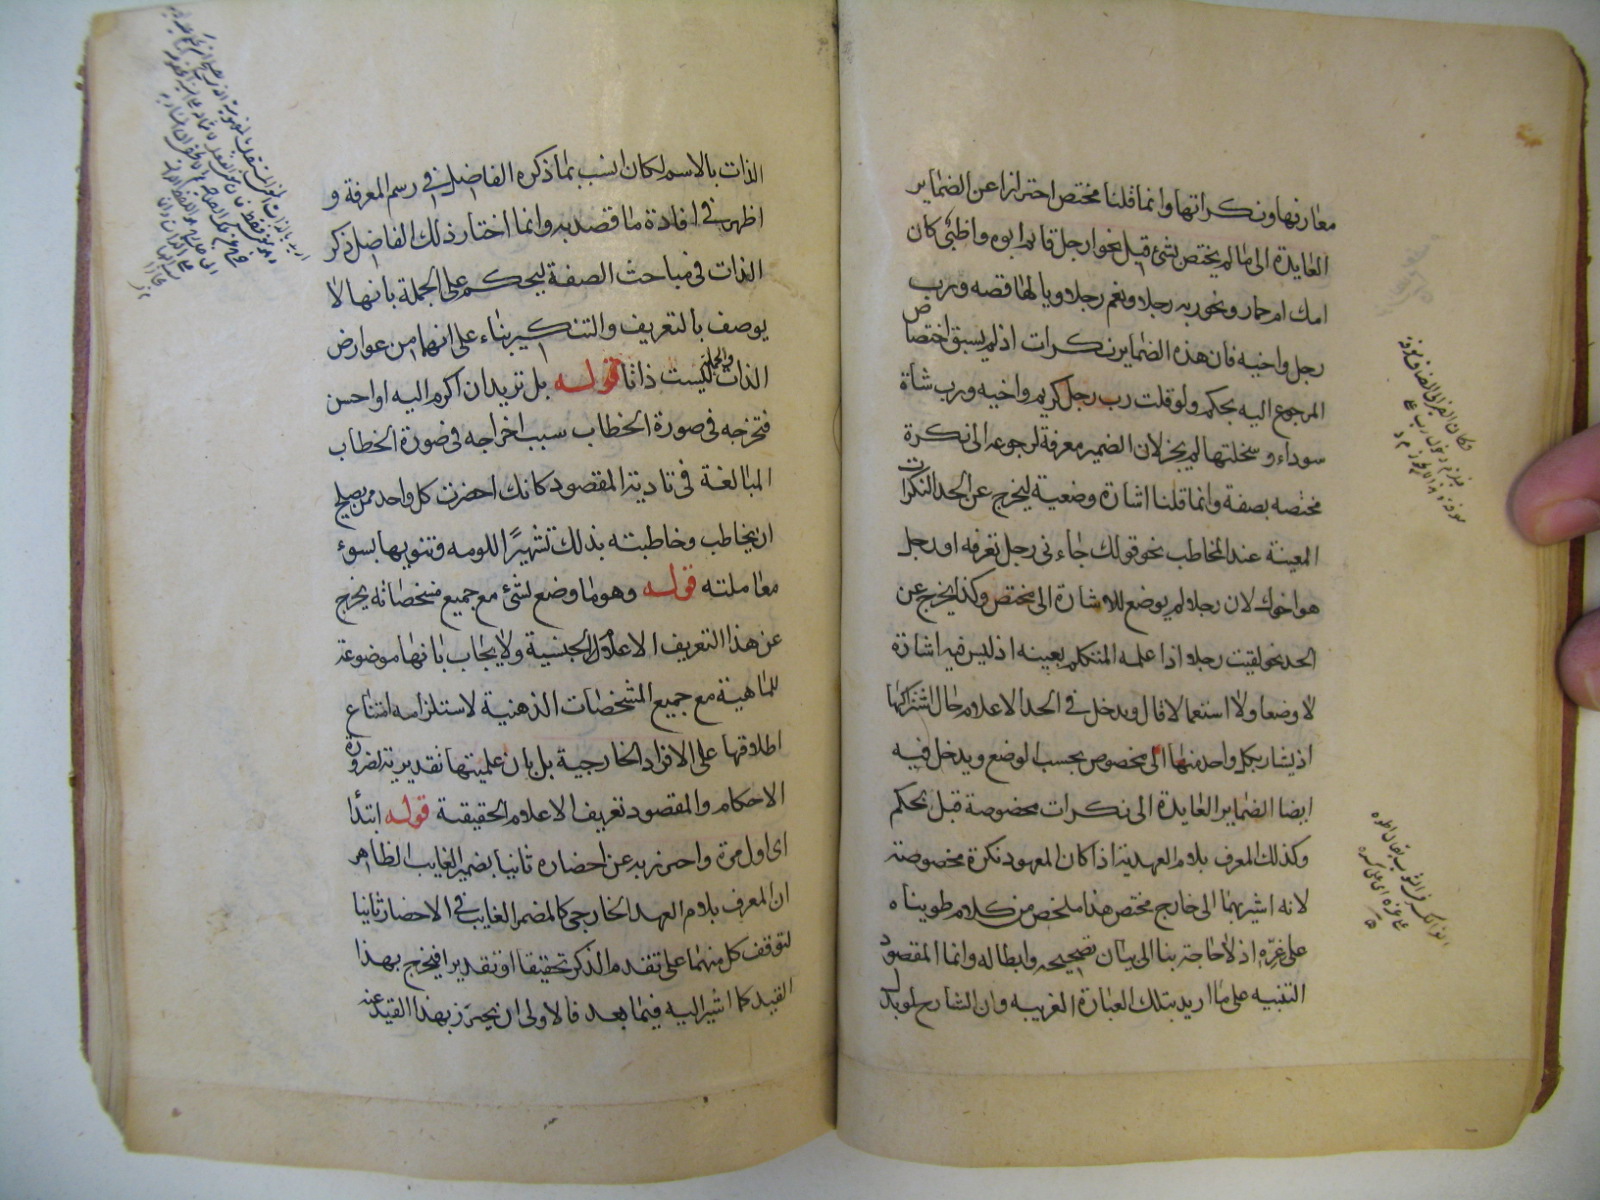 معارفها ونكراتها وانما قلنا مختص احترازا عن الضماير
العايدة الى ما لم يختص بشئ قبل نحو ارجل قائم ابوه واظبى كان
امك ام حمار ونحو ربه رجلا ونعم رجلا ويا لها قصه ورب
رجل واخيه فان هذه الضماير نكرات اذ لم يسبق اختصاص
المرجوع اليه بحكم ولو قلت رب رجل كريم واخيه ورب شاة
سوداء وسخلتها لم يجز لان الضمير معرفة لرجوعه الى نكرة
مختصه بصفة وانما قلنا اشارة وضعية ليخرج عن الحد النكرات
المعينة عند المخاطب نحو قولك جاءنى رجل تعرفه او رجل
هو اخوك لان رجلا لم يوضع للاشارة الى مختص وكذا يخرج عن
الحد نحو لقيت رجلا اذا علمه المتكلم بعينه اذ ليس فيه اشارة
لا وضعا ولا استعمالا قال ويدخل في الحد الاعلام حال اشتراكها
اذ يشار بكل واحد منها الى مخصوص بحسب الوضع ويدخل فيه
ايضا الضماير العايدة الى نكرات مخصوصة قبل بحكم
وكذلك المعرف بلام العهدية اذا كان المعهود نكرة مخصوصة
لانه اشير بهما الى خارج مختص هذا ملخص من كلام طويناه
على غرّه اذ لا حاجة بنا الى بيان تصحيحه وابطاله وانما المقصود
التنبيه على ما اريد بتلك العبارة الغريبه وان الشارح لو بدل
الذات بالاسم لكان انسب بما ذكره الفاضل في رسم المعرفة و
اظهر في افادة ما قصد به وانما اختار ذلك الفاضل ذكر
الذات في مباحث الصفة ليحكم على الجملة بانها لا
يوصف بالتعريف والتنكير بناء على انهما من عوارض
الذات والجملة ليست ذاتا قوله بل تريد ان اكرم اليه او احسن
فتخرجه في صورة الخطاب سبب اخراجه في صورة الخطاب
المبالغة في تادية المقصود كانك احضرت كل واحد ممن يصلح
ان يخاطب وخاطبته بذلك تشهيرًا للومه وتنويها بسوء
معاملته قوله وهو ما وضع لشئ مع جميع مشخصاته يخرج
عن هذا التعريف الاعلام الجنسية ولا يجاب بانها موضوعة
للماهية مع جميع المشخصات الذهنية لاستلزامه امتناع
اطلاقها على الافراد الخارجية بل بان علميتها تقديرية لضرورة
الاحكام والمقصود تعريف الاعلام الحقيقية قوله ابتدأ
اى اول مرة واحترز به عن احضاره ثانيا بضمير الغايب الظاهر
ان المعرف بلام العهد الخارجى كالمضمر الغايب في الاحضار ثانيا
لتوقف كل منهما على تقدم الذكر تحقيقا او تقديرا فيخرج بهذا
القيد كما اشير اليه فيما بعد فالاولى ان يحترز بهذا القيد عنه